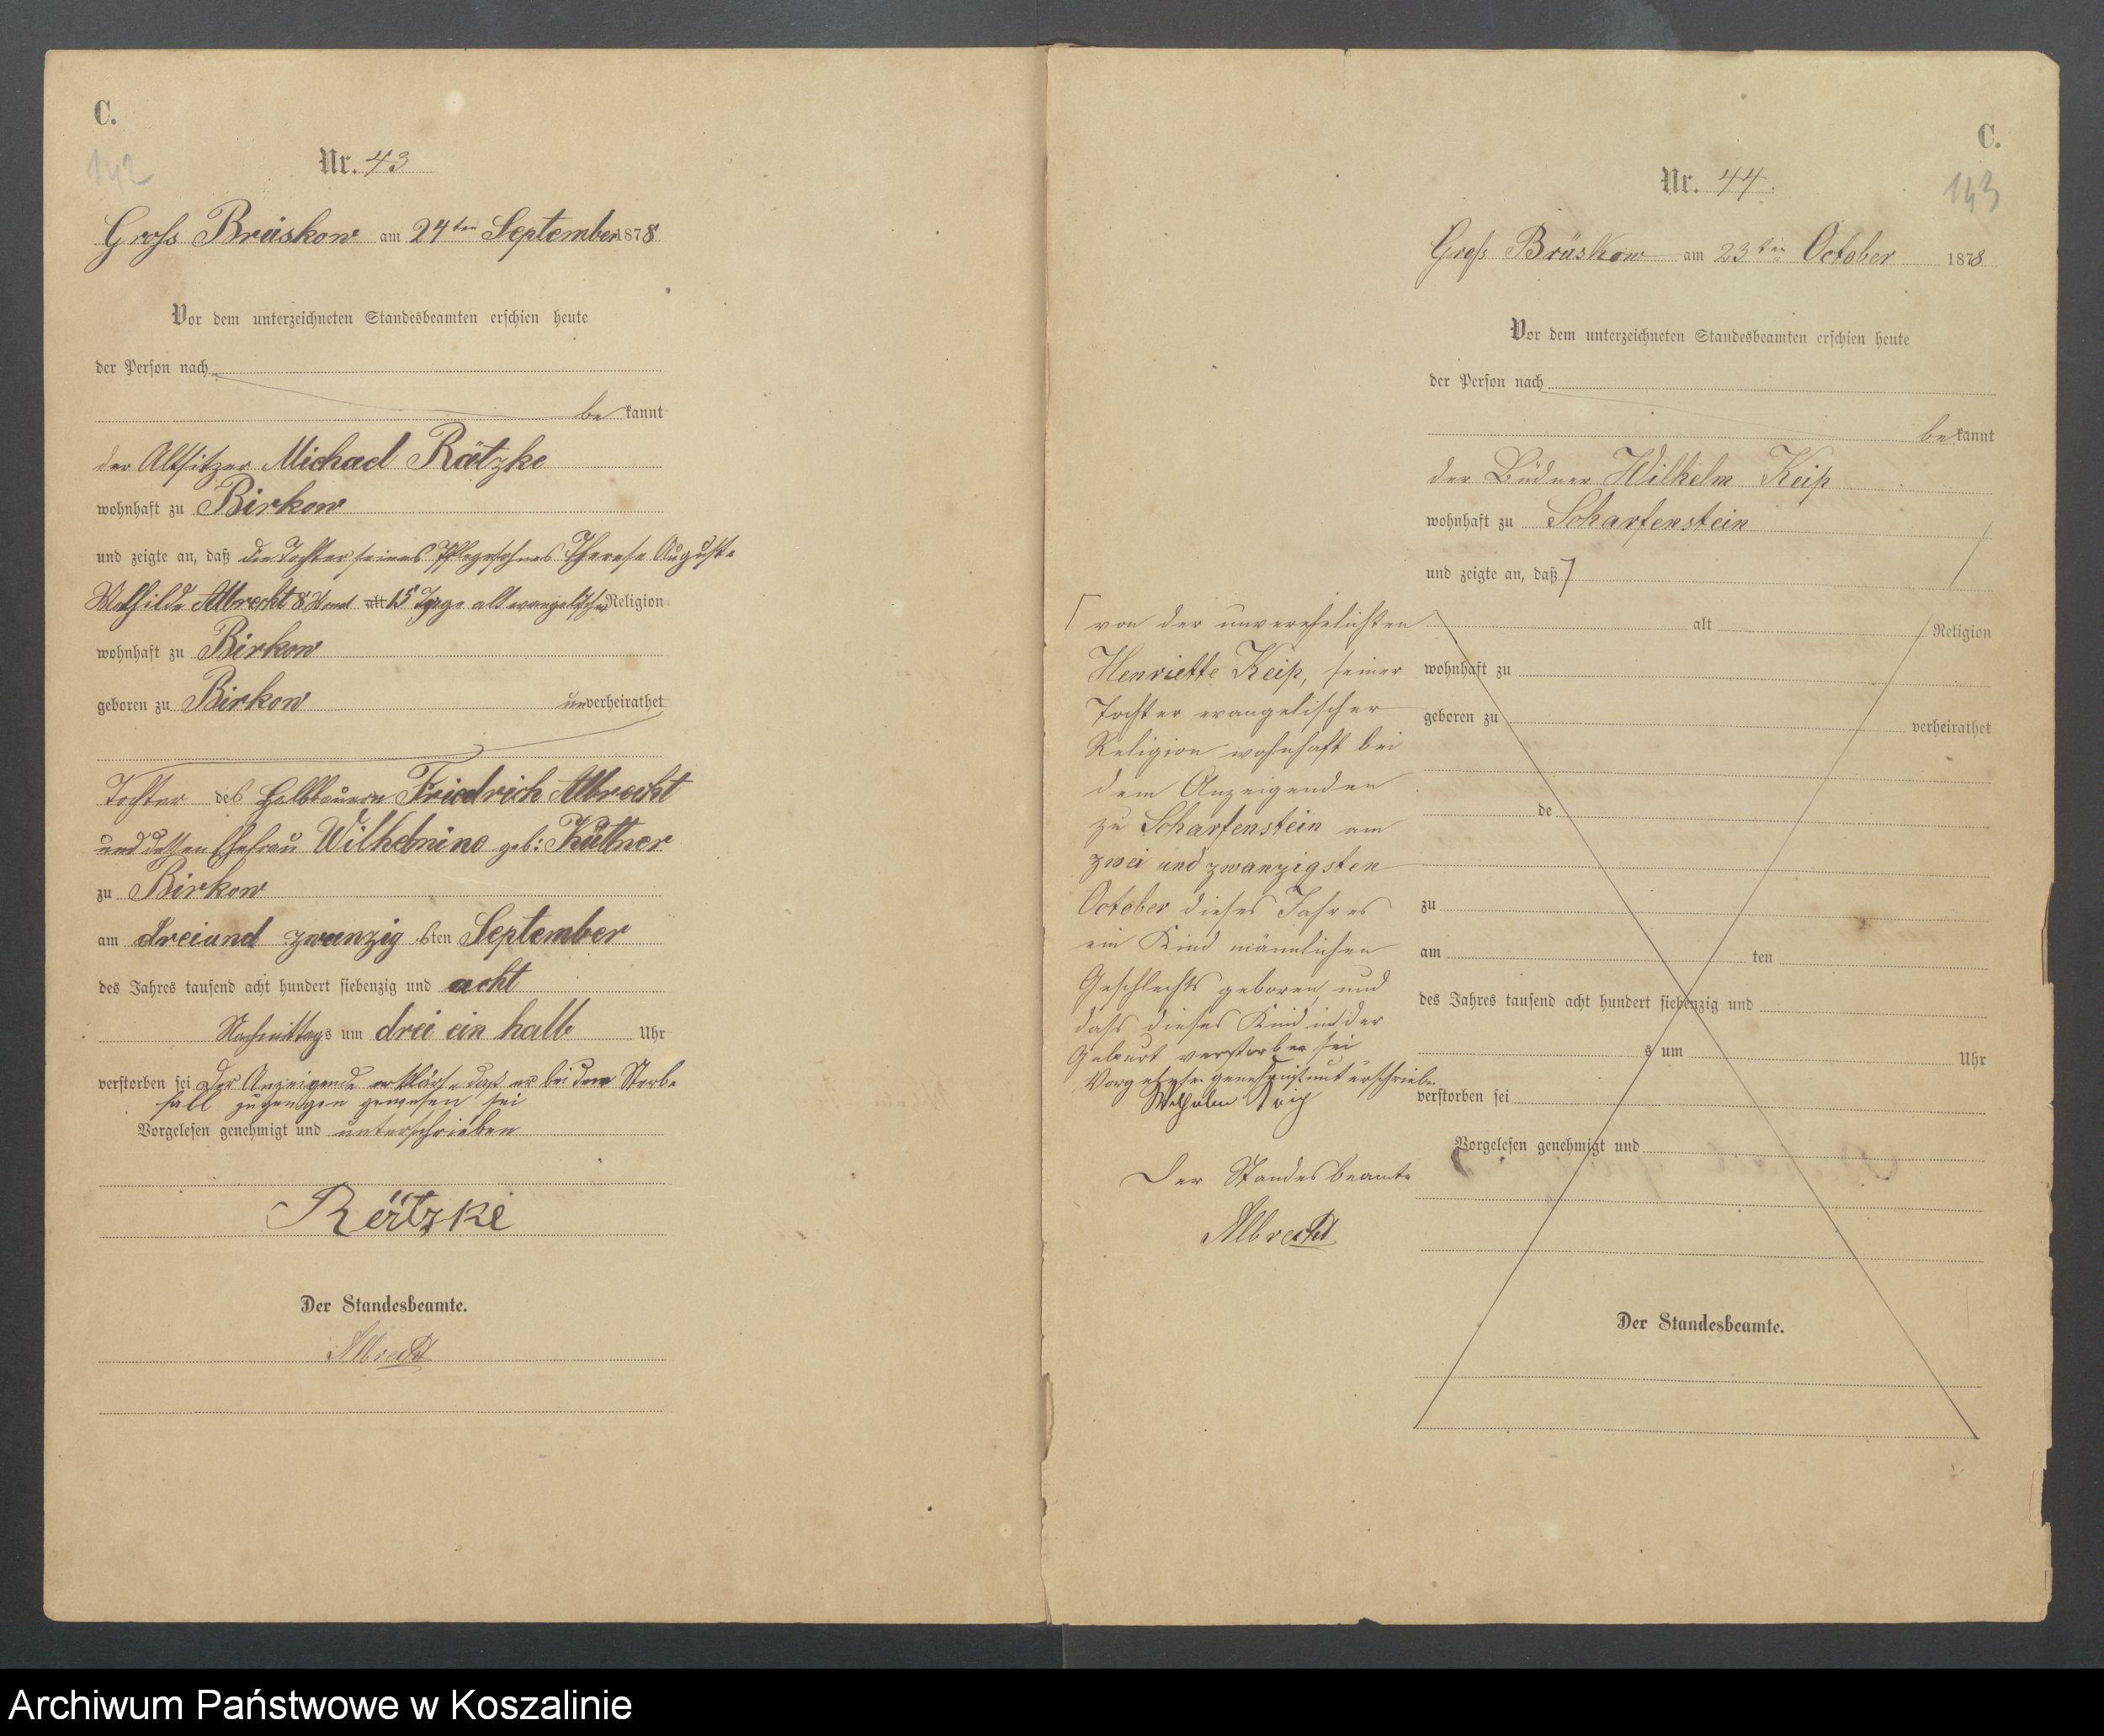 C.
142
Nr. 43
Gross Brüskow am 24ten September 1878
Vor dem unterzeichneten Standesbeamten erschien heute
der Person nach
be kannt
der Altsitzer Michael Rätzke
wohnhaft zu Birkow
und zeigte an, daß die Tochter seines Pflegesohnes Therese Auguste
Mathilde Albrecht 8 Monat alt 15 Tage alt evangelischer Religion
wohnhaft zu Birkow
geboren zu Birkow unverheirathet
Tochter des Halbbauern Friedrich Albrecht
und dessen Ehefrau Wilhelmine geb: Küttner
zu Birkow
am dreiund zwanzigsten September
des Jahres tausend acht hundert siebenzig und acht
Nachmittags um drei ein halb Uhr
verstorben sei Der Anzeigende erklärte daß er bei dem Sterbe
fall zugegen gewesen sei
Vorgelesen genehmigt und unterschrieben
Rätzke
Der Standesbeamte.
Albrecht
C.
143
Nr. 44.
Groß Brüskow am 23ten October 1878
Vor dem unterzeichneten Standesbeamten erschien heute
der Person nach
be kannt
der Büdner Wilhelm Keip
wohnhaft zu Scharfenstein
und zeigte an, daß
von der unverehelichten
Henriette Keip, seiner
Tochter evangelischer
Religion wohnhaft bei
dem Anzeigenden
zu Scharfenstein am
zwei und zwanzigsten
October dieses Jahres
ein Kind männlichen
Geschlechts geboren, und
dass dieses Kind in der
Geburt verstorben sei
Vorgelesen genehmigt unterschrieben
Wilhelm Keip
Der Standesbeamte
Albrecht
alt Religion
wohnhaft zu
geboren zu verheirathet
de
zu
am ten
des Jahres tausend acht hundert siebenzig und
s um Uhr
verstorben sei
Vorgelesen genehmigt und
Der Standesbeamte.
Archiwum Państwowe w Koszalinie